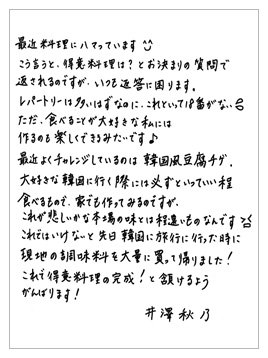 最近料理にハマっています
こう言うと、得意料理は?とお決まりの質問で
返されるのですが、いつも返答に困ります。
レパートリーは多いはずなのに、これといって18番がない
ただ、食べることが大好きな私には
作るのも楽しくできるみたいです♪
最近よくチャレンジしているのは韓国風豆腐チゲ。
大好きな韓国に行く際には必ずといっていい程
食べるもので、家でも作ってみるのですが、
これが悲しいかな本場の味とは程遠いものなんです
これではいけないと先日韓国に旅行に行った時に
現地の調味料を大量に買って帰りました!
これで得意料理の完成!と頷けるよう
がんばります!
井澤秋乃